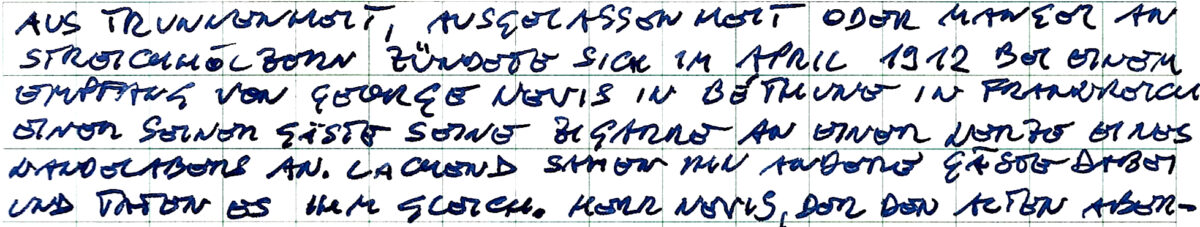 AUS TRUNKENHEIT, AUSGELASSENHEIT ODER MANGEL AN
STREICHHÖLZERN ZÜNDETE SICH IM APRIL 1912 BEI EINEM
EMPFANG VON GEORGE KEVIS IN BÉTHUNE IN FRANKREICH
EINER SEINER GÄSTE SEINE ZIGARRE AN EINER KERZE EINES
KANDELABERS AN. LACHEND SAHEN IHN ANDERE GÄSTE DABEI
UND TATEN ES IHM GLEICH. HERR KEVIS, DER DEN ALTEN ABER-